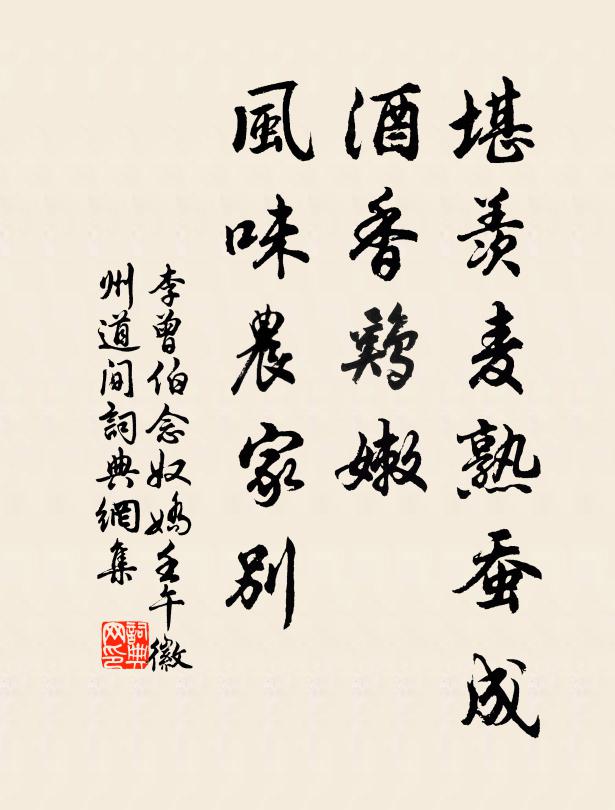 堪羨麦熟蚕成
酒香鷄嫩
風味農家別
李曾伯念奴嬌壬午徽
州道间詞典網集
詞典网印